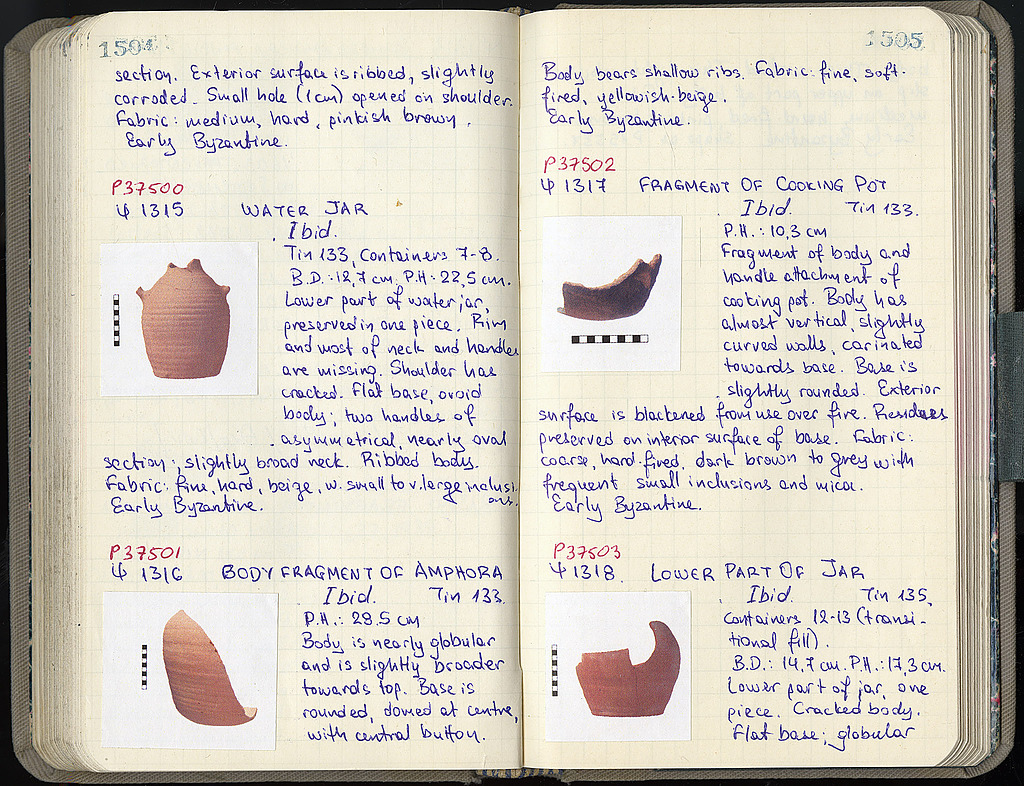 1504
section. Exterior surface is ribbed, slightly
corroded. Small hole (1cm) opened on shoulder.
Fabric: medium, hard, pinkish brown.
Early Byzantine.
P37500
Ψ 1315 WATER JAR
Ibid.
Tin 133, Containers 7-8.
B.D.: 12,7 cm. P.H.: 22,5 cm.
Lower part of water jar,
preserved in one piece. Rim
and most of neck and handles
are missing. Shoulder has
cracked. Flat base, ovoid
body; two handles of
asymmetrical, nearly oval
section; slightly broad neck. Ribbed body.
Fabric: fine, hard, beige, w. small to v. large inclusi
ons.
Early Byzantine.
P37501
Ψ 1316 BODY FRAGMENT OF AMPHORA
Ibid. Tin 133.
P.H.: 28.5 cm
Body is nearly globular
and is slightly broader
towards top. Base is
rounded, domed at centre,
with central button.
1505
Body bears shallow ribs. Fabric: fine, soft-
fired, yellowish-beige.
Early Byzantine.
P37502
Ψ 1317 FRAGMENT OF COOKING POT
Ibid. Tin 133.
P.H.: 10,3 cm
Fragment of body and
handle attachment of
cooking pot. Body has
almost vertical, slightly
curved walls, carinated
towards base. Base is
slightly rounded. Exterior
surface is blackened from use over fire. Residues
preserved on interior surface of base. Fabric:
coarse, hard-fired, dark brown to grey with
frequent small inclusions and mica.
Early Byzantine.
P37503
Ψ 1318. LOWER PART OF JAR
Ibid. Tin 135,
Containers 12-13 (transi-
tional fill).
B.D.: 14,7 cm. P.H.: 17,3 cm.
Lower part of jar, one
piece. Cracked body.
Flat base; globular